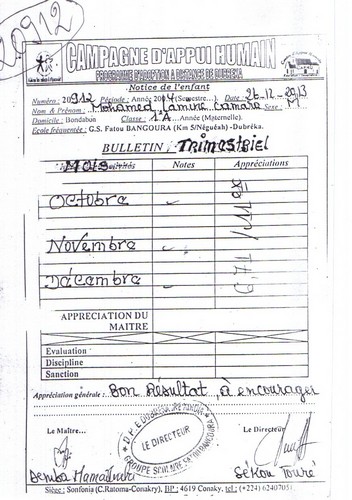 20912
CAMPAGNE D'APPUI HUMAIN
PROGRAMME D'ADOPTION A DISTANCE DE DUBREKA
Notice de l'enfant
Numéro : 20912 Période : Année 2004 (Semestre...). Date : 26-12-2013
Nom & Prénom : Mohamed Lamine Camara Sexe : M
Domicile : Bondabon Classe : 1ère A ...Année (Maternelle).
Ecole fréquentée : G.S. Fatou BANGOURA (Km 5/Néguéah)-Dubréka.
BULLETIN Trimestriel
Mois Notes Appréciations
Octobre
Novembre
Décembre
APPRECIATION DU MAITRE
Evaluation
Discipline
Sanction
Appréciation générale : Bon Résultat, à encourager
Le Maître... Le Directeur
LE DIRECTEUR
Sékou Touré
Siège : Sonfonia (C.Ratoma-Conakry), BP : 4619 Conaky, tel : (+224) 62407051